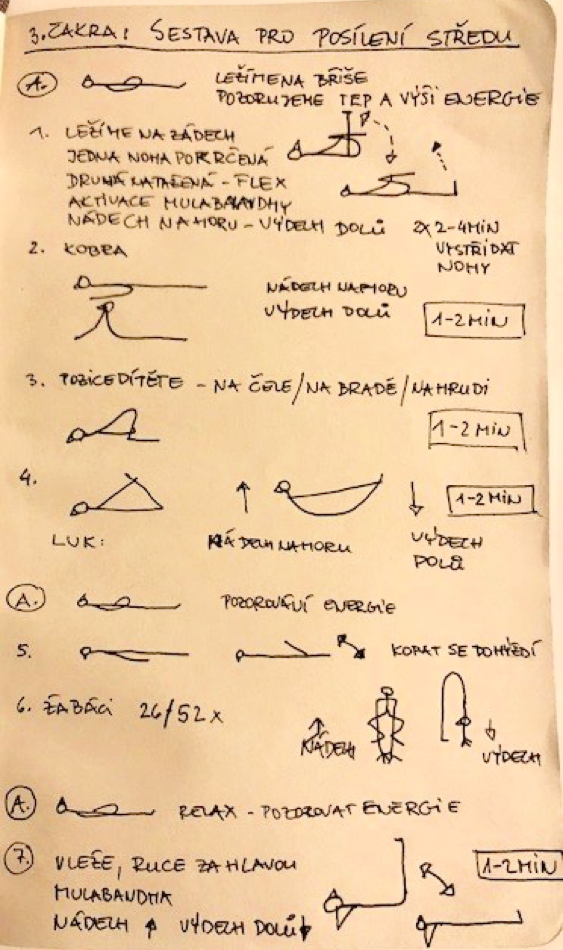 3. ČAKRA: SESTAVA PRO POSÍLENÍ STŘEDU
A. LEŽÍME NA BŘIŠE
POZORUJEME TEP A VÝŠI ENERGIE
1. LEŽÍME NA ZÁDECH
JEDNA NOHA POKRČENÁ
DRUHÁ NATAŽENÁ - FLEX
ACTIVACE MULABANDHY
NÁDECH NAHORU - VÝDECH DOLŮ 2x 2-4 MIN
VYSTŘÍDAT
NOHY
2. KOBRA
NÁDECH NAHORU
VÝDECH DOLŮ
1-2 MIN
3. POZICE DÍTĚTE - NA ČELE/NA BRADĚ/NA HRUDI
1-2 MIN
4.
1-2 MIN
LUK:
NÁDECH NAHORU
VÝDECH
DOLŮ
A. POZOROVÁNÍ ENERGIE
5. KOPAT SE DO HÝŽDÍ
6. ŽABÁCI 26/52x
NÁDECH
VÝDECH
A. RELAX - POZOROVAT ENERGIE
7. VLEŽE, RUCE ZA HLAVOU
1-2 MIN
MULABANDHA
NÁDECH ↑ VÝDECH DOLŮ ↓